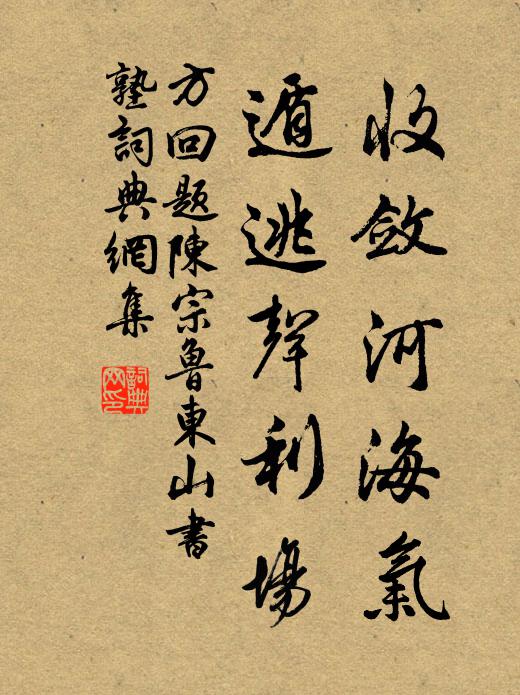 收斂河海氣
遁逃聲利場
方回題陳宗魯東山書
塾詞典網集
詞典網印